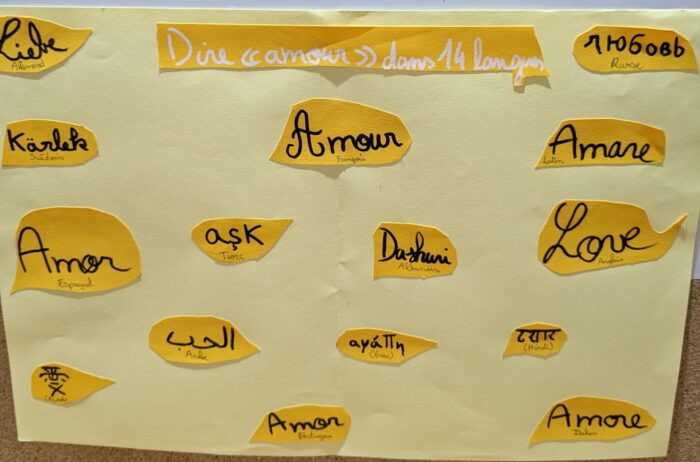 Dire «amour» dans 14 langues
Liebe
Allemand
любовь
Russe
Kärlek
Suédois
Amour
Français
Amare
Latin
Amor
Espagnol
aşk
Turc
Dashuri
Albanais
Love
Anglais
الحب
Arabe
αγάπη
(Grec)
(Hindi)
愛
Amor
Portugais
Amore
Italien